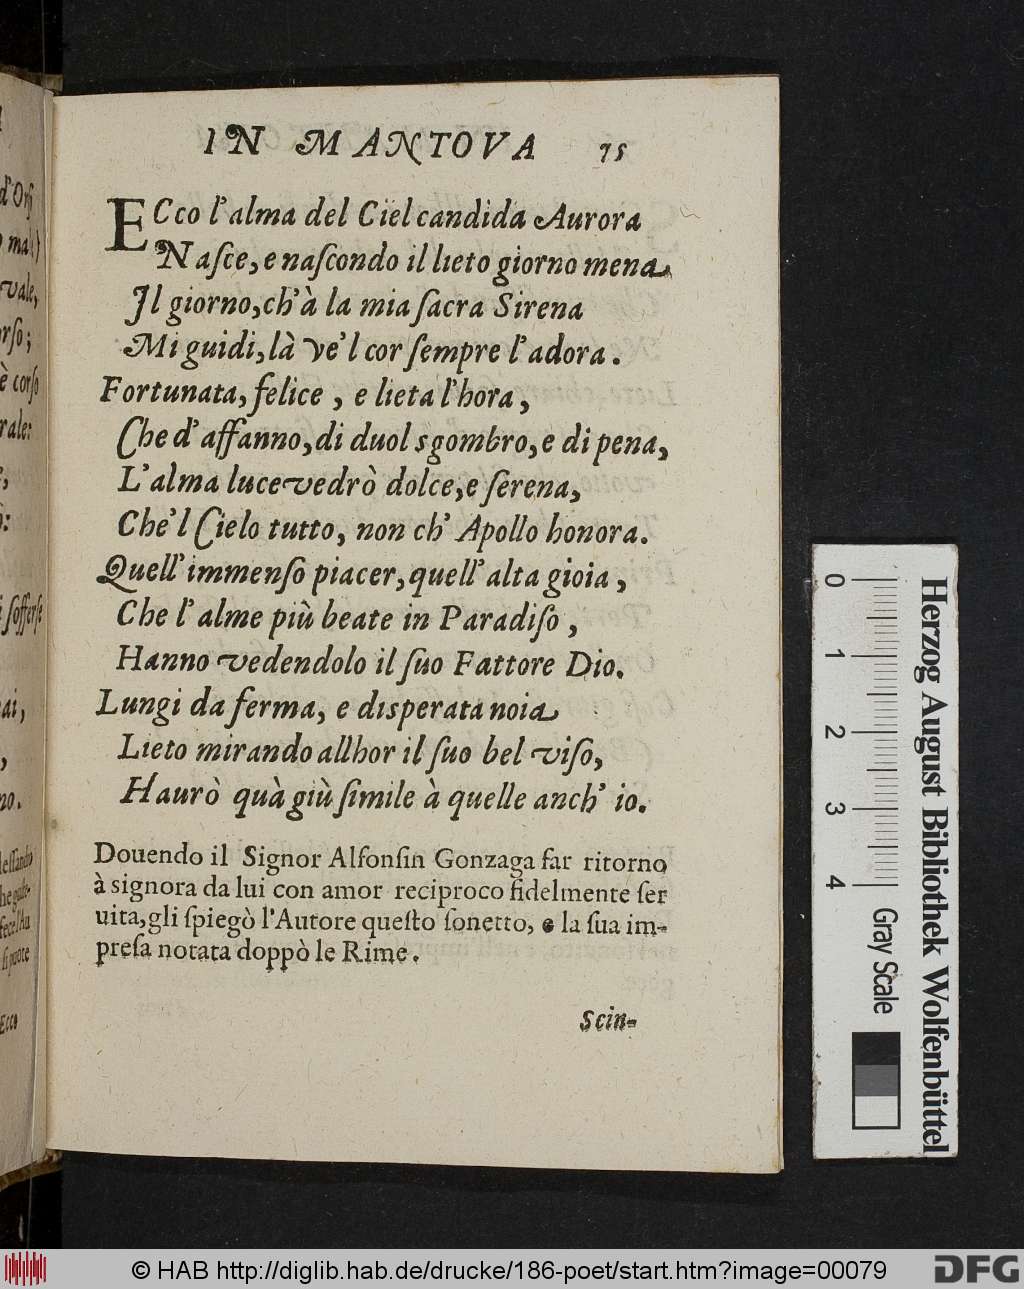 IN MANTOVA 75
ECco l'alma del Ciel candida Aurora
Naſce, e naſcondo il lieto giorno mena
Il giorno, ch'à la mia ſacra Sirena
Mi guidi, là ve'l cor ſempre l'adora.
Fortunata, felice, e lieta l'hora,
Che d'affanno, di duol sgombro, e di pena,
L'alma luce vedrò dolce, e ſerena,
Che'l Cielo tutto, non ch' Apollo honora.
Quell' immenſo piacer, quell' alta gioia,
Che l'alme più beate in Paradiſo,
Hanno vedendolo il ſuo Fattore Dio.
Lungi da ferma, e disperata noia
Lieto mirando allhor il ſuo bel viſo,
Haurò quà giù ſimile à quelle anch' io.
Douendo il Signor Alfonſin Gonzaga far ritorno
à signora da lui con amor reciproco fidelmente ſer
uita, gli ſpiegò l'Autore queſto ſonetto, e la ſua im-
preſa notata doppò le Rime.
Scin-
d'Orſ
mal)
vale,
rſo;
è corſo
rale:
ſofferſe
ai,
no.
Ecco
0 1 2 3 4
Gray Scale
Herzog August Bibliothek Wolfenbüttel
© HAB http://diglib.hab.de/drucke/186-poet/start.htm?image=00079
DFG